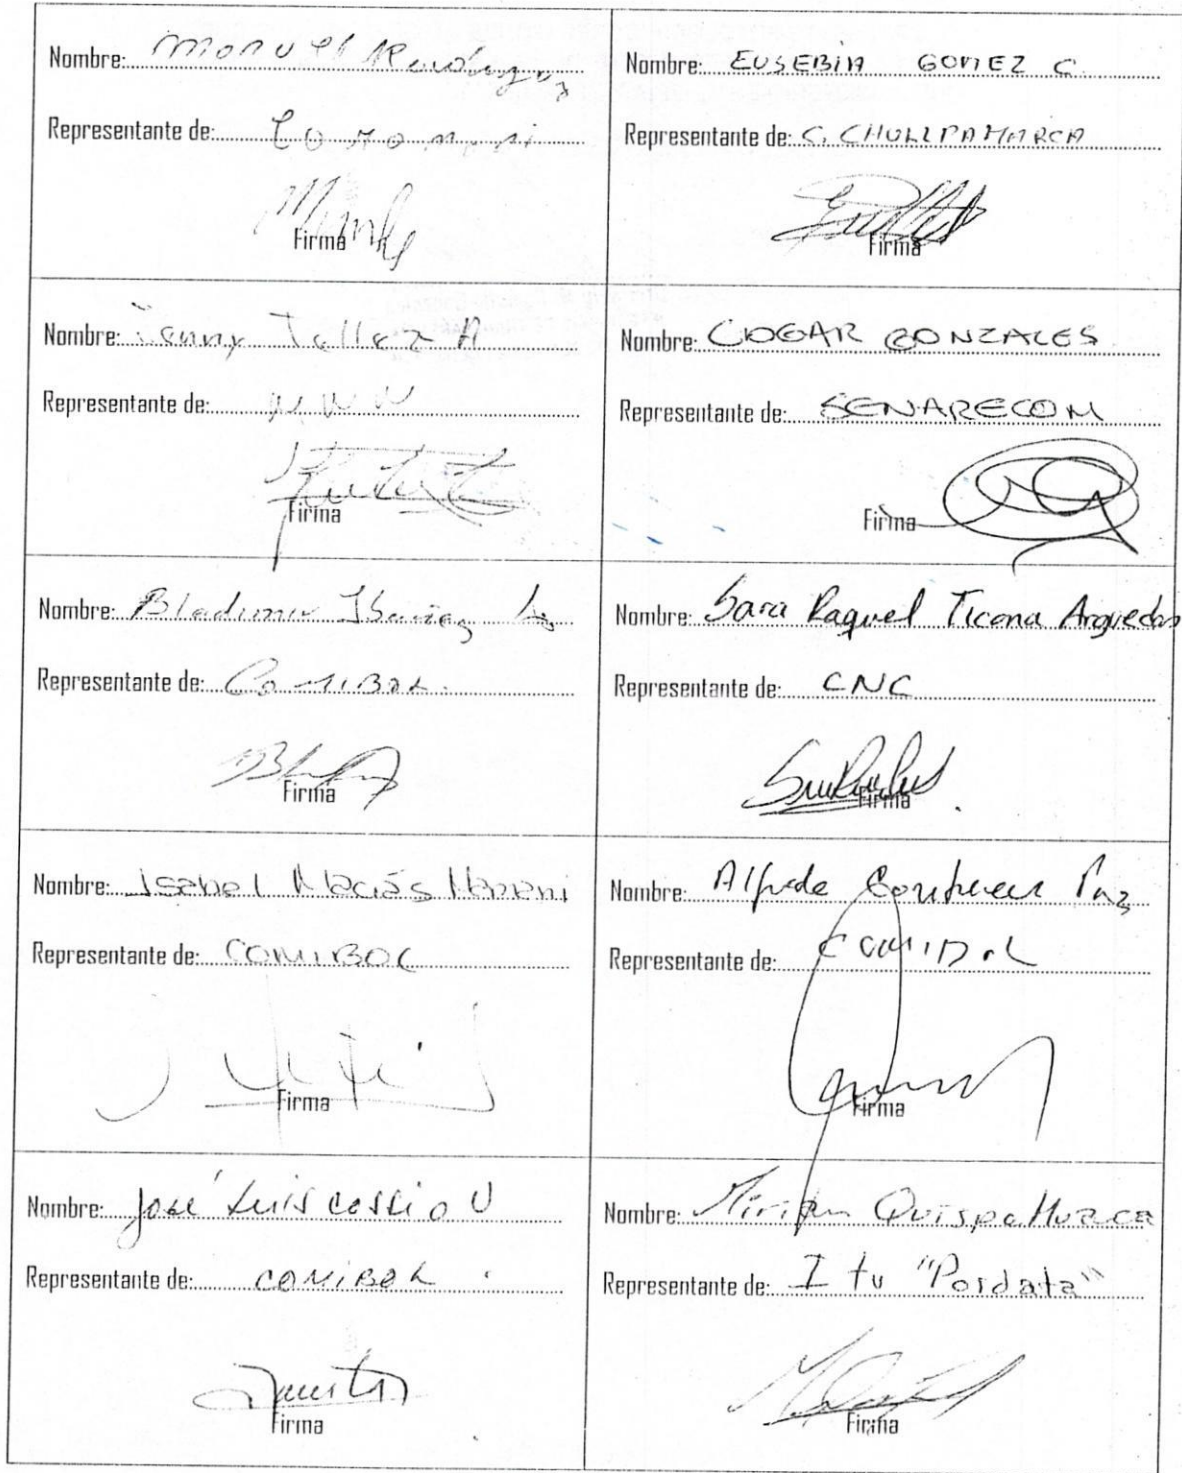 Nombre: Manuel Rodriguez
Representante de: Coromeri
Firma
Nombre: EUSEBIA GOMEZ C.
Representante de: C. CHULLPAMARCA
Firma
Nombre: Jenny Tellez A
Representante de:
Firma
Nombre: EDGAR GONZALES
Representante de: SENARECOM
Firma
Nombre: Bladimir Ibañez
Representante de: COMIBOL
Firma
Nombre: Sara Raquel Ticona Arguedas
Representante de: CNC
Firma
Nombre: Isabel Macías Mamani
Representante de: COMIBOL
Firma
Nombre: Alfredo Contreras Paz
Representante de: COMIBOL
Firma
Nombre: José Luis Cossio U
Representante de: COMIBOL
Firma
Nombre: Miriam Quispe Huanca
Representante de: Itu "Pordata"
Firma